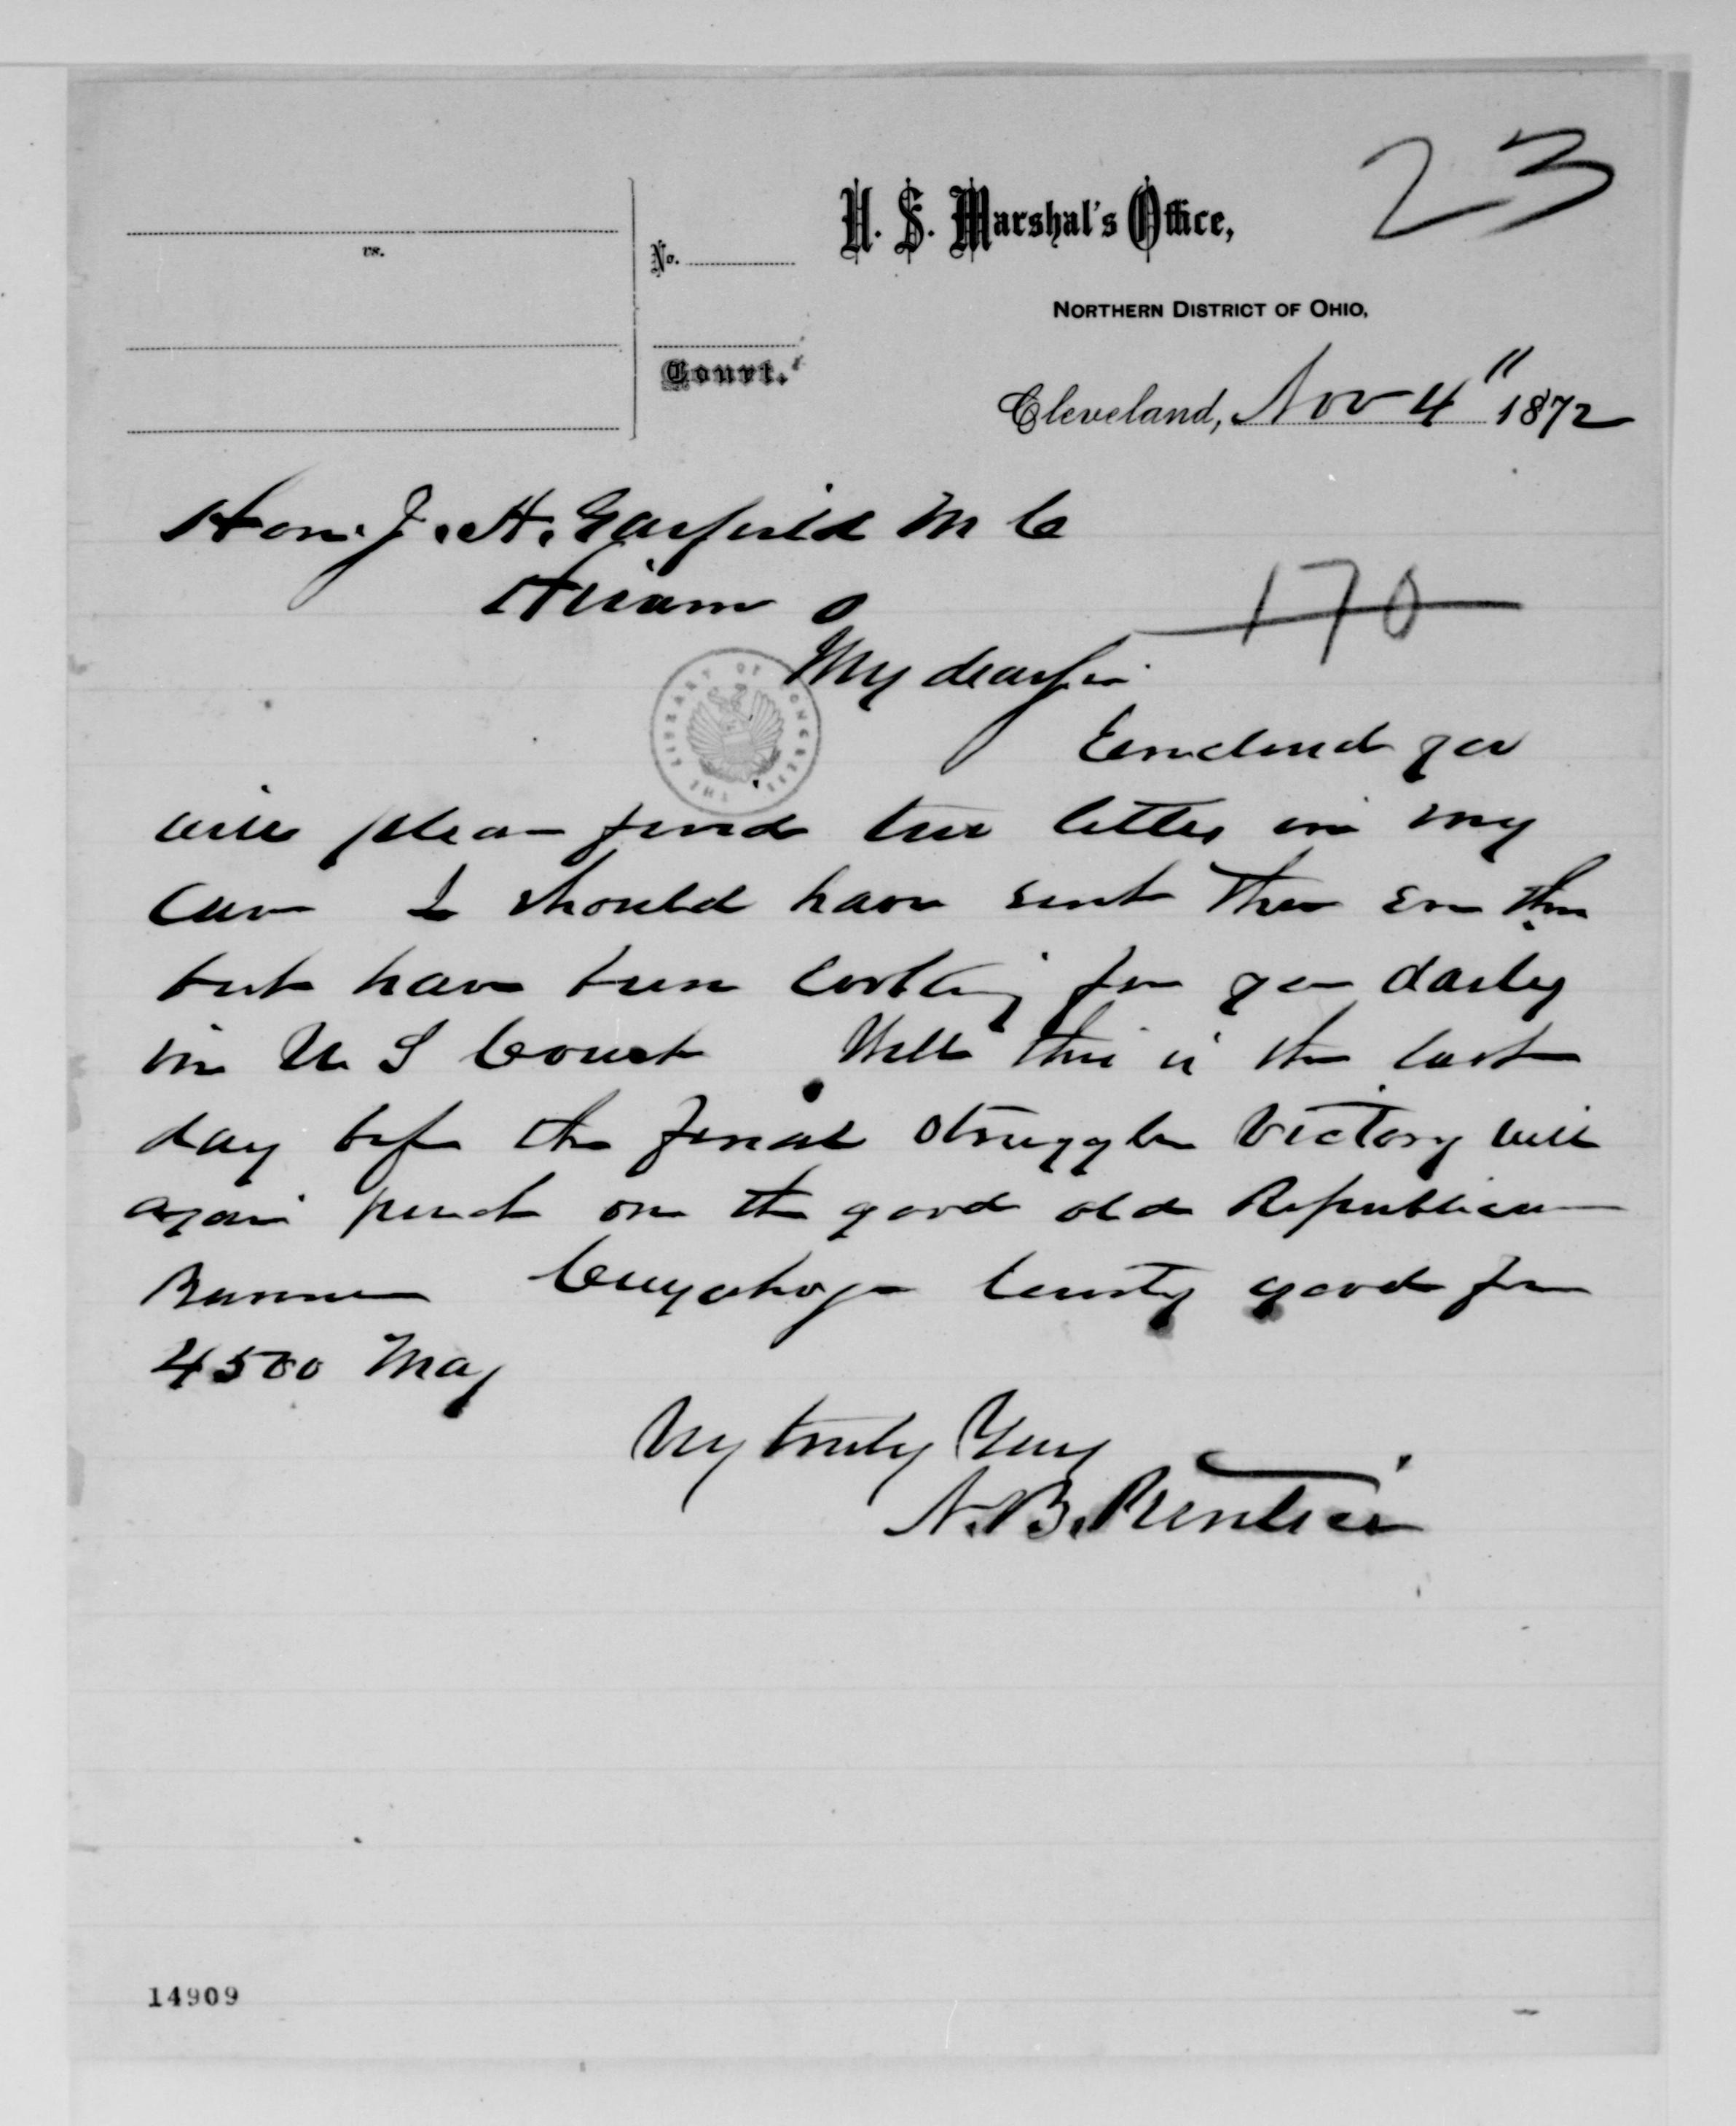 23
U. S. Marshal's Office,
vs.
No.
Northern District of Ohio,
Court.
Cleveland, Nov 4" 1872
Hon. J. H. Garfield M C
Hiram O
170
My dear Sir
THE LIBRARY OF CONGRESS
Enclosed you
will please find two letters in my
care I should have sent them
but have been looking for you daily
in U S Court Well this is the last
day before the final struggle Victory will
again perch on the good old Republican
Banner Cuyahoga County good for
4500 Maj
Very truly Yours
N. B. Prentice
14909